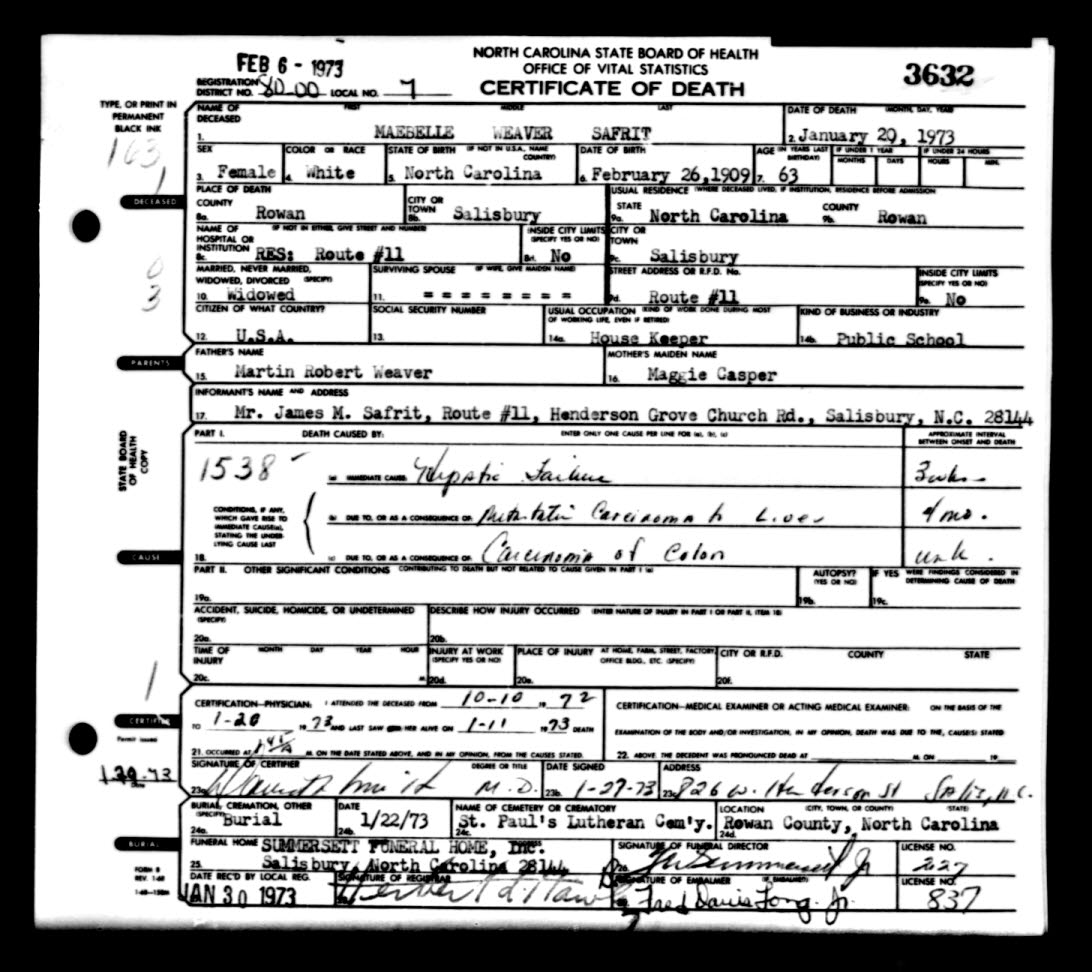 FEB 6 - 1973
NORTH CAROLINA STATE BOARD OF HEALTH
OFFICE OF VITAL STATISTICS
CERTIFICATE OF DEATH
3632
REGISTRATION DISTRICT NO. 80-00 LOCAL NO. 7
TYPE, OR PRINT IN PERMANENT BLACK INK
163
1
NAME OF DECEASED FIRST MIDDLE LAST
1. MAEBELLE WEAVER SAFRIT
DATE OF DEATH (MONTH, DAY, YEAR)
2. January 20, 1973
SEX
3. Female
COLOR OR RACE
4. White
STATE OF BIRTH (IF NOT IN U.S.A., NAME COUNTRY)
5. North Carolina
DATE OF BIRTH
6. February 26,1909
AGE (IN YEARS LAST BIRTHDAY)
7. 63
IF UNDER 1 YEAR
MONTHS DAYS
IF UNDER 24 HOURS
HOURS MIN.
DECEASED
PLACE OF DEATH
COUNTY
8a. Rowan
CITY OR TOWN
8b. Salisbury
USUAL RESIDENCE (WHERE DECEASED LIVED, IF INSTITUTION, RESIDENCE BEFORE ADMISSION
STATE
9a. North Carolina
COUNTY
9b. Rowan
NAME OF HOSPITAL OR INSTITUTION (IF NOT IN EITHER, GIVE STREET AND NUMBER)
8c. RES: Route #11
INSIDE CITY LIMITS (SPECIFY YES OR NO)
8d. No
CITY OR TOWN
9c. Salisbury
0
3
MARRIED, NEVER MARRIED, WIDOWED, DIVORCED (SPECIFY)
10. Widowed
SURVIVING SPOUSE (IF WIFE, GIVE MAIDEN NAME)
11. = = = = = = = =
STREET ADDRESS OR R.F.D. No.
9d. Route #11
INSIDE CITY LIMITS (SPECIFY YES OR NO)
9e. No
CITIZEN OF WHAT COUNTRY?
12. U.S.A.
SOCIAL SECURITY NUMBER
13.
USUAL OCCUPATION (KIND OF WORK DONE DURING MOST OF WORKING LIFE, EVEN IF RETIRED)
14a. House Keeper
KIND OF BUSINESS OR INDUSTRY
14b. Public School
PARENTS
FATHER'S NAME
15. Martin Robert Weaver
MOTHER'S MAIDEN NAME
16. Maggie Casper
INFORMANT'S NAME AND ADDRESS
17. Mr. James M. Safrit, Route #11, Henderson Grove Church Rd., Salisbury, N.C. 28144
STATE BOARD OF HEALTH COPY
PART I. DEATH CAUSED BY: ENTER ONLY ONE CAUSE PER LINE FOR (a), (b), (c)
APPROXIMATE INTERVAL BETWEEN ONSET AND DEATH
1538
(a) IMMEDIATE CAUSE: Hepatic Failure 3 wks
CONDITIONS, IF ANY, WHICH GAVE RISE TO IMMEDIATE CAUSE(a), STATING THE UNDERLYING CAUSE LAST
(b) DUE TO, OR AS A CONSEQUENCE OF: Metastatic Carcinoma to Liver mo.
CAUSE
18.
(c) DUE TO, OR AS A CONSEQUENCE OF: Carcinoma of Colon unk.
PART II. OTHER SIGNIFICANT CONDITIONS CONTRIBUTING TO DEATH BUT NOT RELATED TO CAUSE GIVEN IN PART I (a)
19a.
AUTOPSY? (YES OR NO)
19b.
IF YES WERE FINDINGS CONSIDERED IN DETERMINING CAUSE OF DEATH
19c.
ACCIDENT, SUICIDE, HOMICIDE, OR UNDETERMINED (SPECIFY)
20a.
DESCRIBE HOW INJURY OCCURRED (ENTER NATURE OF INJURY IN PART I OR PART II, ITEM 18)
20b.
TIME OF INJURY MONTH DAY YEAR HOUR
20c. M.
INJURY AT WORK (SPECIFY YES OR NO)
20d.
PLACE OF INJURY AT HOME, FARM, STREET, FACTORY, OFFICE BLDG., ETC. (SPECIFY)
20e.
CITY OR R.F.D. COUNTY STATE
20f.
1
CERTIFIER
Permit issued
1-20-73
Date
CERTIFICATION—PHYSICIAN: I ATTENDED THE DECEASED FROM 10-10 1972
TO 1-20 1973 AND LAST SAW HER ALIVE ON 1-11 1973 DEATH
21. OCCURRED AT M. ON THE DATE STATED ABOVE, AND IN MY OPINION, FROM THE CAUSES STATED
CERTIFICATION—MEDICAL EXAMINER OR ACTING MEDICAL EXAMINER: ON THE BASIS OF THE
EXAMINATION OF THE BODY AND/OR INVESTIGATION, IN MY OPINION, DEATH WAS DUE TO THE, CAUSE(S) STATED
22. ABOVE. THE DECEDENT WAS PRONOUNCED DEAD AT M. ON 19
SIGNATURE OF CERTIFIER DEGREE OR TITLE
23a. Smith M.D.
DATE SIGNED
23b. 1-27-73
ADDRESS
23c. 826 W. Henderson St Salis, N.C.
BURIAL, CREMATION, OTHER (SPECIFY)
24a. Burial
DATE
24b. 1/22/73
NAME OF CEMETERY OR CREMATORY
24c. St. Paul's Lutheran Cem'y.
LOCATION (CITY, TOWN, OR COUNTY) (STATE)
24d. Rowan County, North Carolina
BURIAL
FUNERAL HOME SUMMERSETT FUNERAL HOME, Inc.
25. Salisbury, North Carolina 28144
SIGNATURE OF FUNERAL DIRECTOR
Summersett Jr
LICENSE NO.
2127
FORM 8
REV. 1-68
DATE REC'D BY LOCAL REG.
JAN 30 1973
SIGNATURE OF REGISTRAR
SIGNATURE OF EMBALMER (IF EMBALMED)
Fred Davis Long, Jr.
LICENSE NO.
837